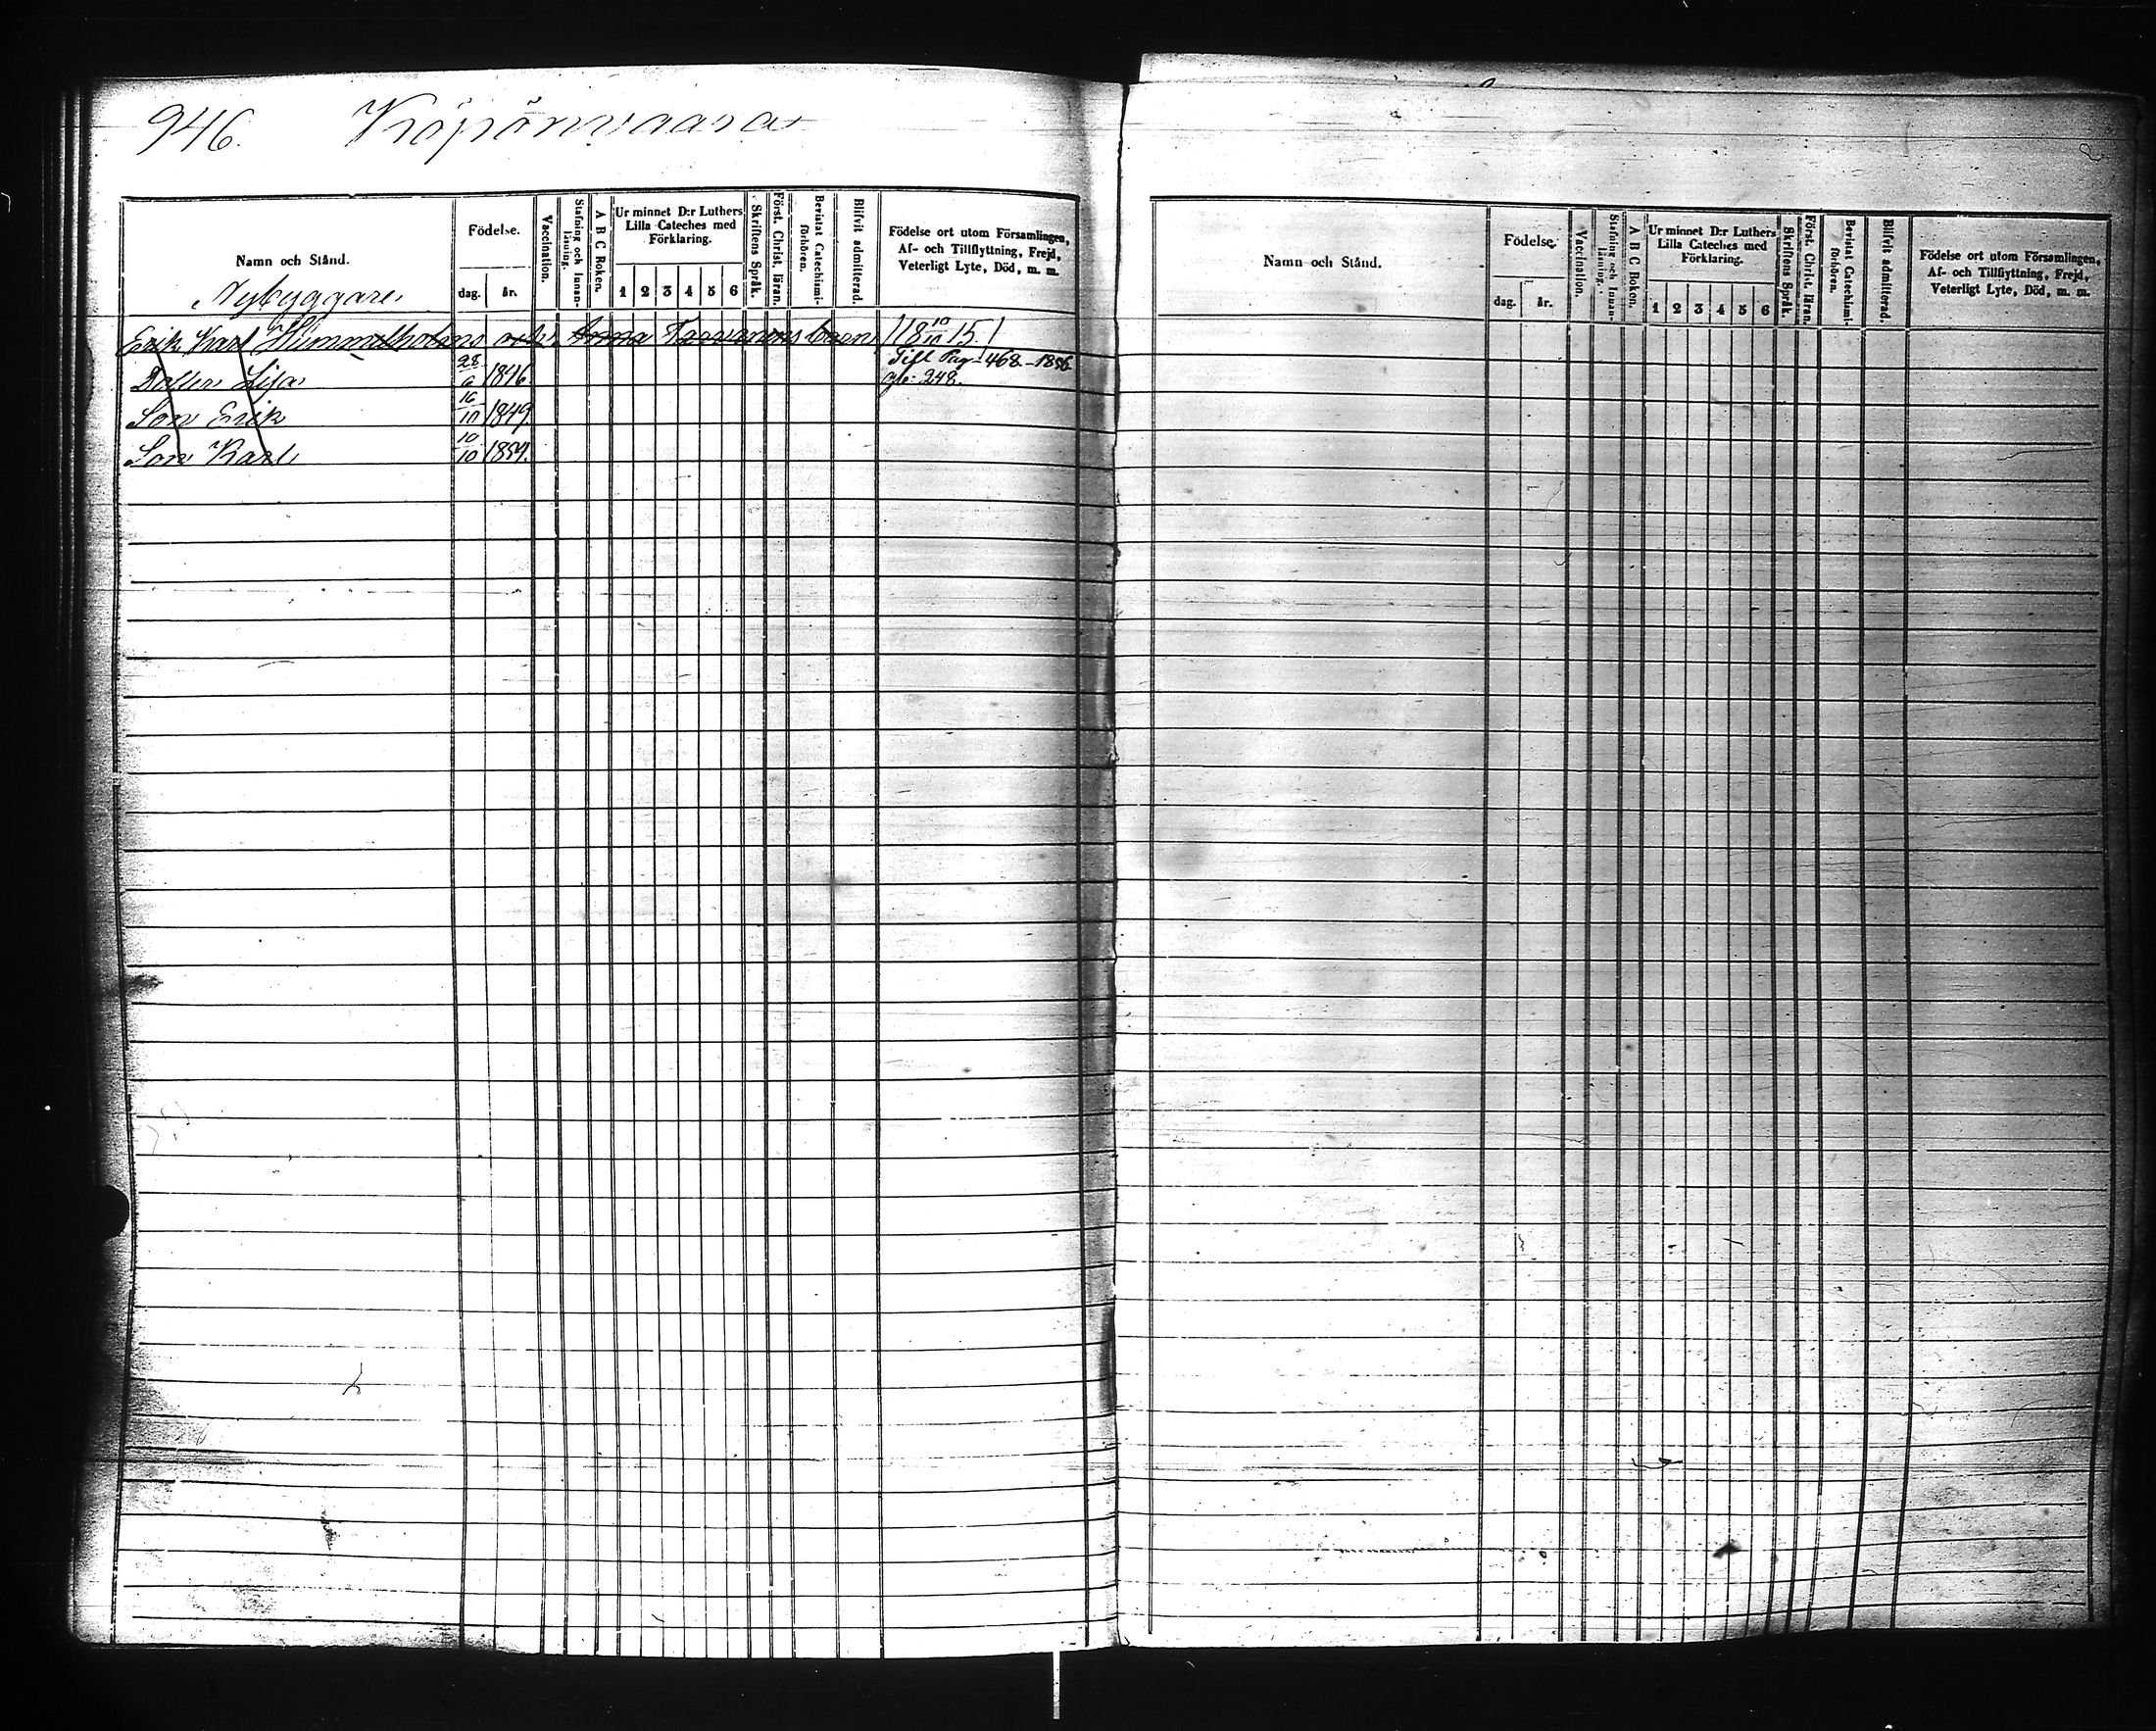 946. Köpönvaara
Namn och Stånd.
Födelse.
dag. år.
Vaccination.
Stafning och Innanläsning.
A B C Boken.
Ur minnet D:r Luthers Lilla Cateches med Förklaring.
1 2 3 4 5 6
Skriftens Språk.
Först. Christ. läran.
Bevistat Catechismiförhören.
Blifvit admitterad.
Födelse ort utom Församlingen,
Af- och Tillflyttning, Frejd,
Veterligt Lyte, Död, m. m.
Nybyggare
Erik Karl Hummelholms och Anna barn 18 10/10 15
Till Pag 468 - 1856
Dotter Lisa 28/6 1846. 248.
Son Erik 16/10 1849.
Son Karl 10/10 1854.
Namn och Stånd.
Födelse.
dag. år.
Vaccination.
Stafning och Innanläsning.
A B C Boken.
Ur minnet D:r Luthers Lilla Cateches med Förklaring.
1 2 3 4 5 6
Skriftens Språk.
Först. Christ. läran.
Bevistat Catechismiförhören.
Blifvit admitterad.
Födelse ort utom Församlingen,
Af- och Tillflyttning, Frejd,
Veterligt Lyte, Död, m. m.